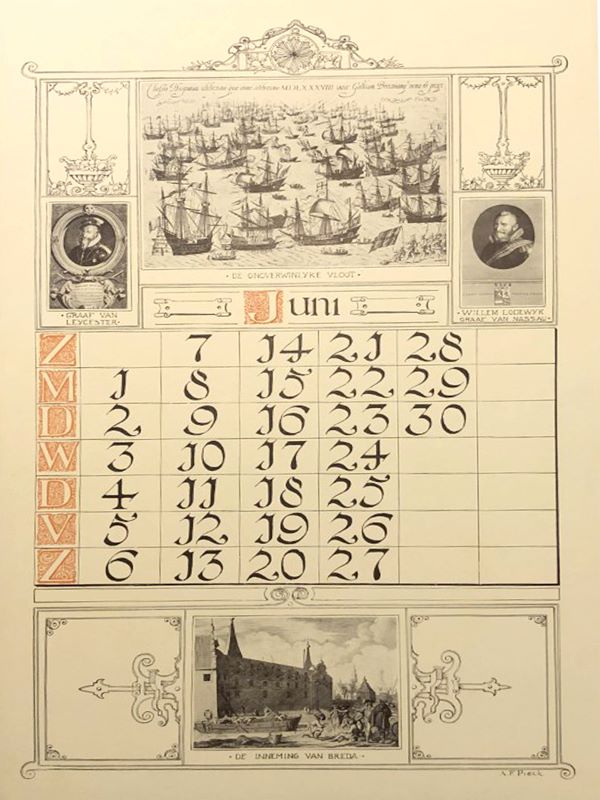 Hispanica anno Galliam
· DE ONOVERWINLYKE VLOOT ·
· GRAAF VAN
LEYCESTER ·
Juni
· WILLEM LODEWYK
GRAAF VAN NASSAU ·
Z 7 14 21 28
M 1 8 15 22 29
D 2 9 16 23 30
W 3 10 17 24
D 4 11 18 25
V 5 12 19 26
Z 6 13 20 27
· DE INNEMING VAN BREDA ·
A. F. Pieck